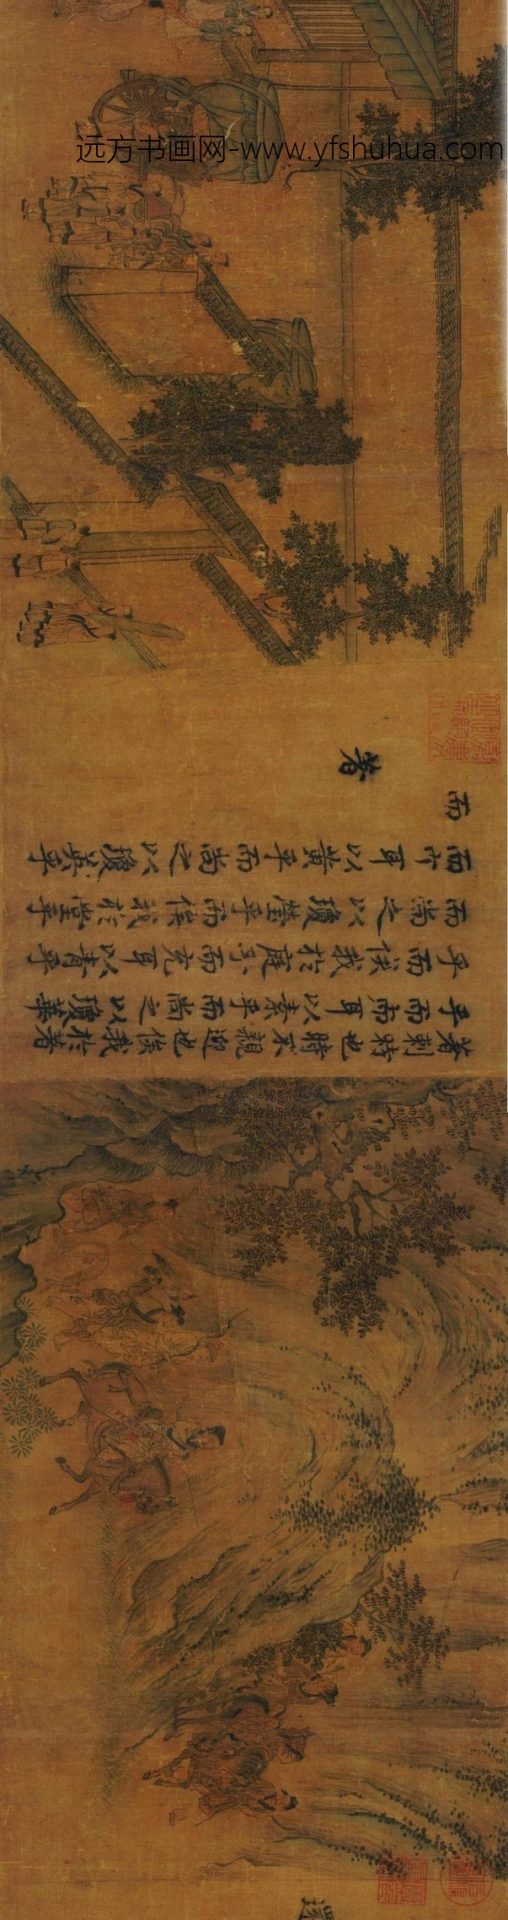 远方书画网-www.yfshuhua.com
還
著刺時也時不親迎也俟我於著
乎而充耳以素乎而尚之以瓊華
乎而俟我於庭乎而充耳以青乎
而尚之以瓊瑩乎而俟我於堂乎
而充耳以黃乎而尚之以瓊英乎
而
著